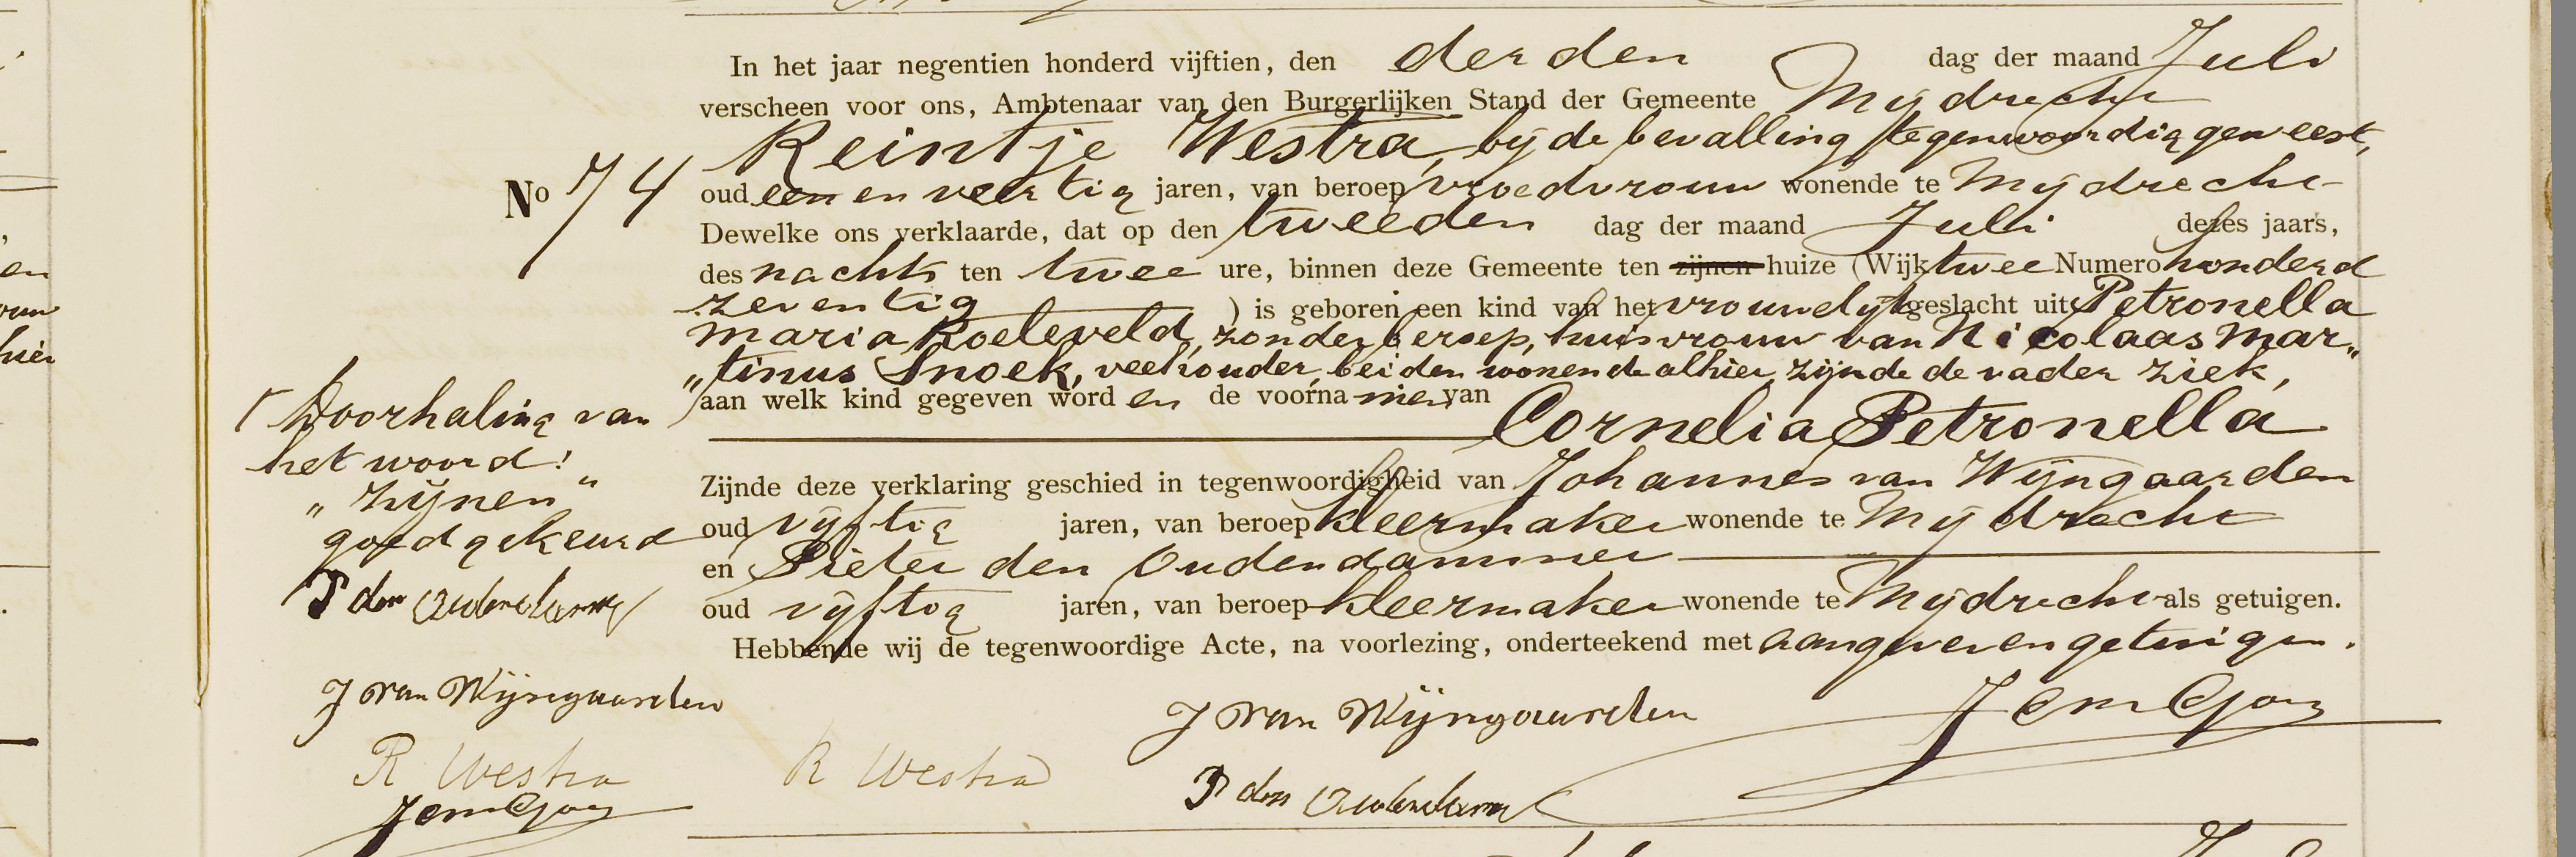 In het jaar negentien honderd vijftien, den derden dag der maand Juli
verscheen voor ons, Ambtenaar van den Burgerlijken Stand der Gemeente Mijdrecht
Reintje Westra, bij de bevalling tegenwoordig geweest,
No 74
oud een en veertig jaren, van beroep vroedvrouw wonende te Mijdrecht
Dewelke ons verklaarde, dat op den tweeden dag der maand Juli dezes jaars,
des nachts ten twee ure, binnen deze Gemeente ten zijnen huize (Wijk twee Numero honderd
zeventig ) is geboren een kind van het vrouwelijk geslacht uit Petronella
Maria Koeleveld, zonder beroep, huisvrouw van Nicolaas Mar„
„tinus Snoek, veehouder, beiden wonende alhier, zijnde de vader ziek,
aan welk kind gegeven word en de voorna men van
Cornelia Petronella
Zijnde deze verklaring geschied in tegenwoordigheid van Johannes van Wijngaarden
oud vijftig jaren, van beroep kleermaker wonende te Mijdrecht
en Pieter den Oudendammer
oud vijftig jaren, van beroep kleermaker wonende te Mijdrecht als getuigen.
Hebbende wij de tegenwoordige Acte, na voorlezing, onderteekend met aangever en getuigen.
Doorhaling van
het woord:
„zijnen"
goedgekeurd
P den Oudendammer
J van Wijngaarden
R Westra
R Westra
J van Wijngaarden
P den Oudendammer